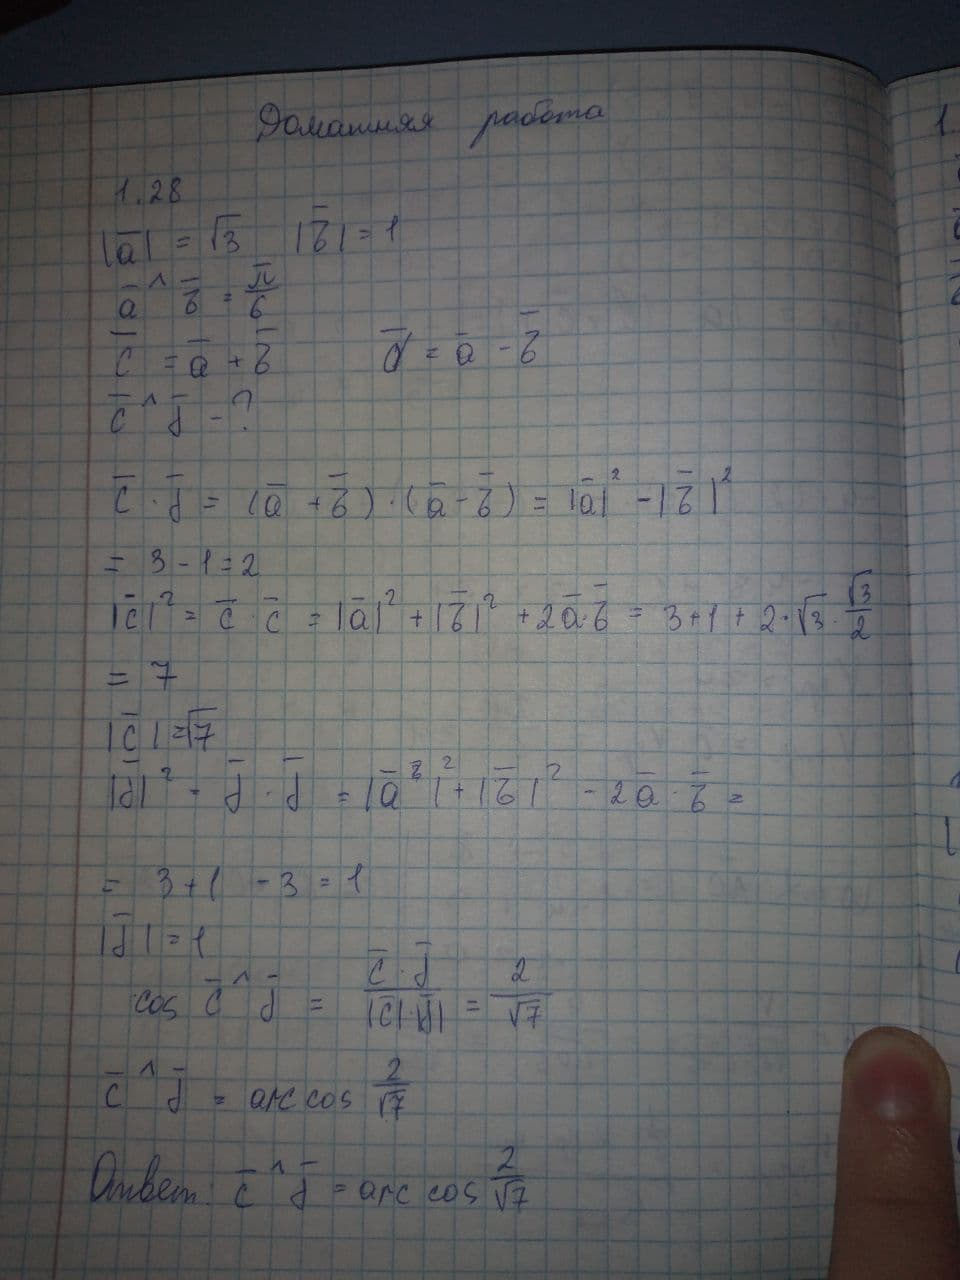 Домашняя работа
1.28
|a̅| = √3 |b̅| = 1
a̅ ^ b̅ = π/6
c̅ = a̅ + b̅ d̅ = a̅ - b̅
c̅ ^ d̅ - ?
c̅ · d̅ = (a̅ + b̅) · (a̅ - b̅) = |a̅|² - |b̅|²
= 3 - 1 = 2
|c̅|² = c̅ · c̅ = |a̅|² + |b̅|² + 2a̅·b̅ = 3 + 1 + 2·√3 · √3/2
= 7
|c̅| = √7
|d̅|² - d̅ · d̅ = |a̅²|² + |b̅|² - 2a̅ · b̅ =
= 3 + 1 - 3 = 1
|d̅| = 1
cos c̅ ^ d̅ = c̅ · d̅ / |c̅|·|d̅| = 2/√7
c̅ ^ d̅ = arc cos 2/√7
Ответ: c̅ ^ d̅ = arc cos 2/√7